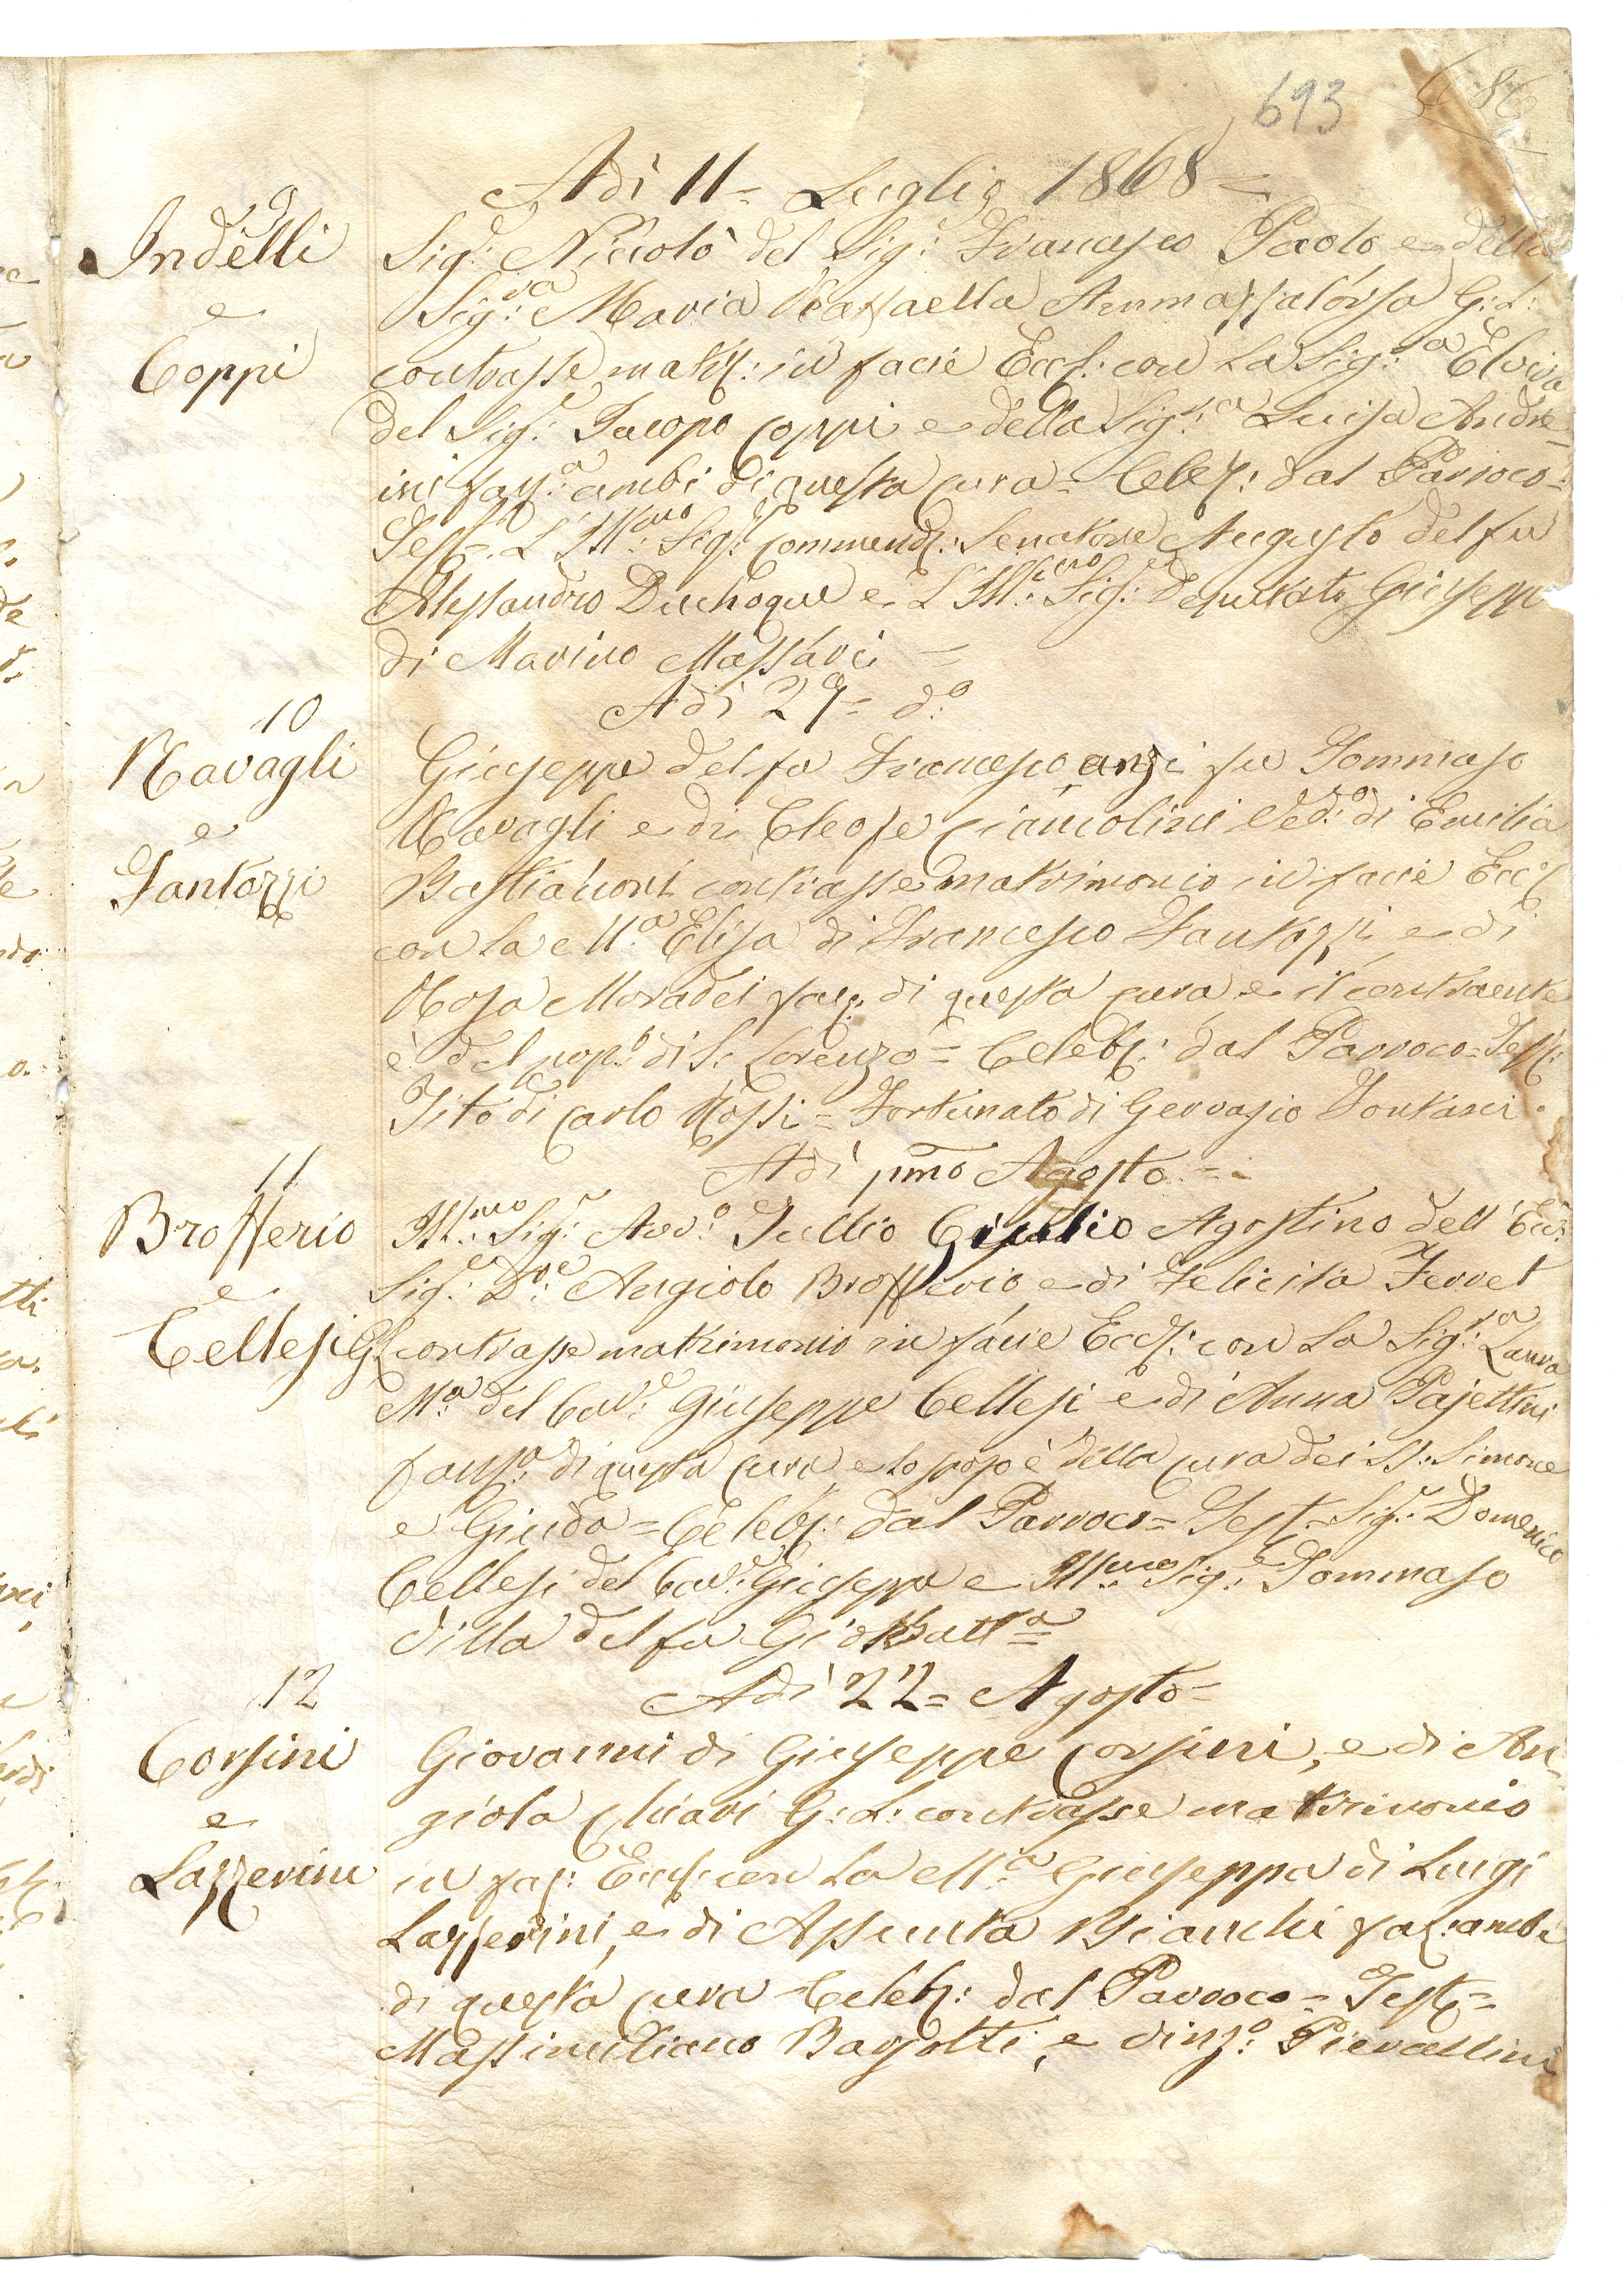 693
Adì 11= Luglio 1868=
9
Indelli
e
Coppi
Sig.r Niccolò del Sig.r Francesco Paolo e della
Sig.ra Maria Raffaella Ammazzalorsa G: L:
contrasse matr: in facie Eccl: con La Sig.a Elvira
del Sig.r Jacopo Coppi e della Sig.ra Luisa Andre=
ini fan.a ambi di questa cura= Celeb: dal Parroco=
Test. L'Ill.mo Sig.r Commend: Senatore Augusto del fu
Alessandro Duchoque e L'Ill.mo Sig.r Deputato Giuseppe
di Marino Massari =
Adì 27= d.o
10
Ravagli
e
Fantozzi
Giuseppe del fu Francesco anzi fu Tommaso
Ravagli e di Cleofe Cianiolini Ved.o di Emilia
Bastianoni contrasse matrimonio in facie Eccl
con la M.a Elisa di Francesco Fantozzi e di
Rosa Moradei fanc. di questa cura e il contraente
è del pop.o di S: Lorenzo= Celeb: dal Parroco= Test:
Tito di Carlo Rossi= Fortunato di Gervasio Fontani.
Adì pmo Agosto=
11
Brofferio
e
Cellesi
Ill.mo Sig.r Avv.o Tullio Giulio Agostino dell' Ecc:
Sig.e D.re Angiolo Brofferio e di Felicita Ferret
G L contrasse matrimonio in facie Eccl: con La Sig.ra Laura
M.a del Cav.e Giuseppe Cellesi e di Anna Pajettini
fanc.a di questa cura e lo sposo è della cura dei SS: Simone
e Giuda= Celeb: dal Parroco= Test= Sig.r Domenico
Cellesi del Cav.e Giuseppe e Ill.mo Sig.r Tommaso
Villa del fu Gio Batt.a=
12
Adì 22= Agosto=
Corsini
e
Lazzerini
Giovanni di Giuseppe Corsini, e di An=
giola Chiari G: L: contrasse matrimonio
in fac: Eccl: con La M.a Giuseppa di Luigi
Lazzerini, e di Assunta Bianchi fac: ambi
di questa cura= Celeb: dal Parroco= Test=
Massimiliano Bargotti, e Vinz.o Pierallini